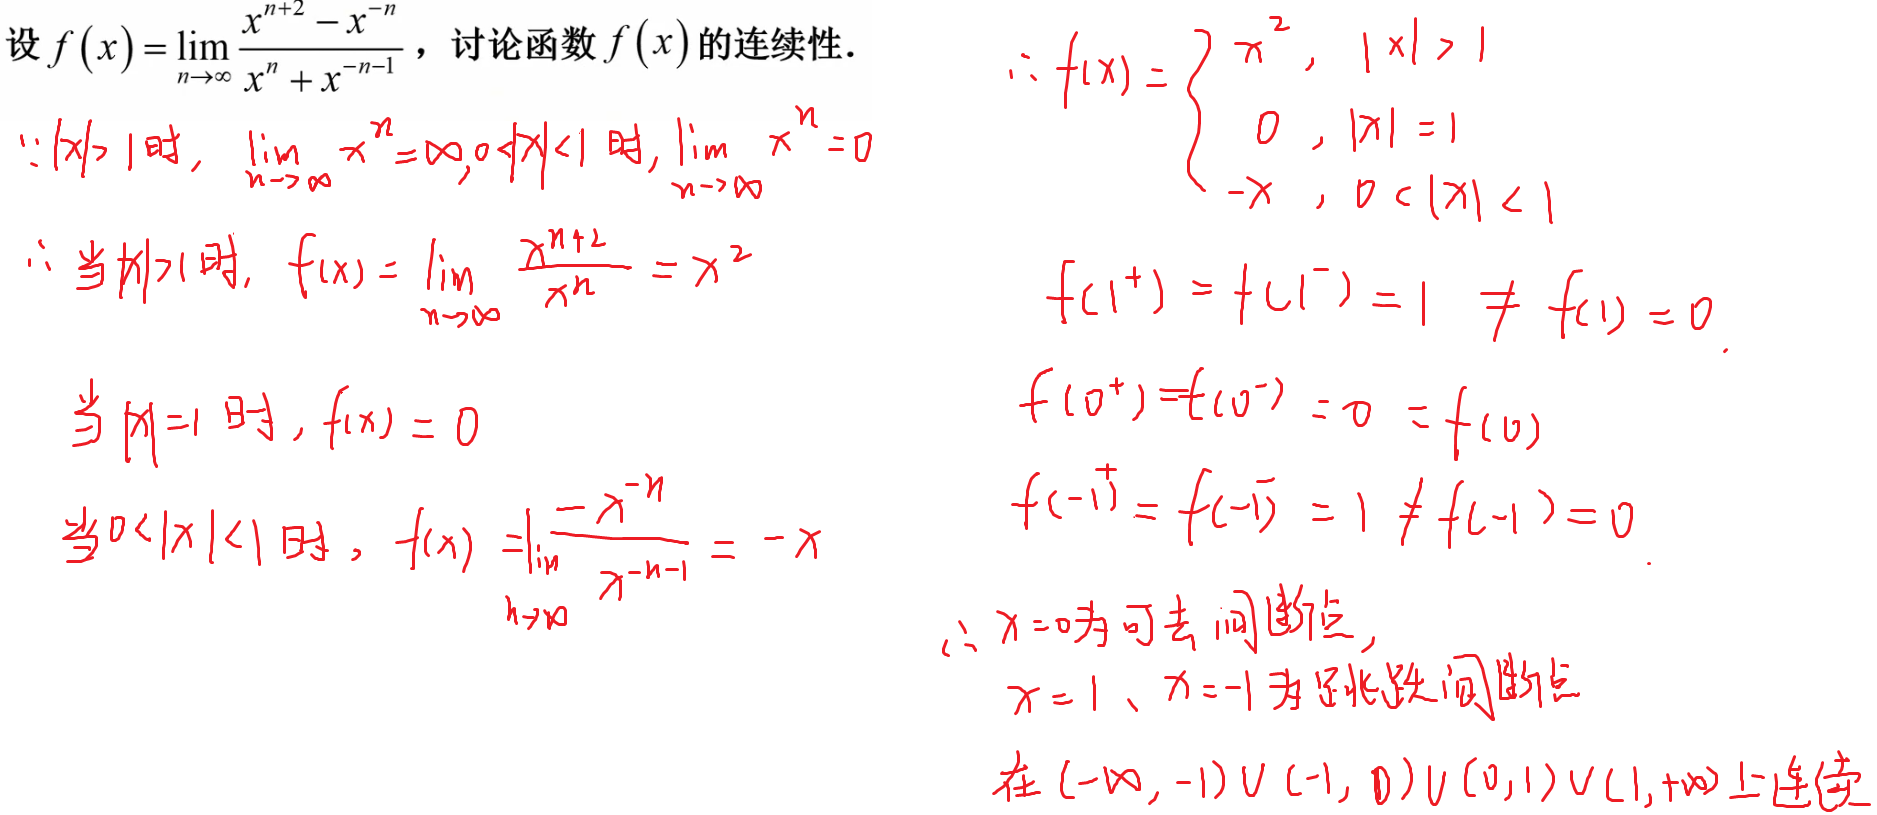 设 f(x) = lim_{n→∞} \frac{x^{n+2} - x^{-n}}{x^n + x^{-n-1}}，讨论函数 f(x) 的连续性.
∵|x|>1时, lim_{n→∞} x^n = ∞, 0<|x|<1时, lim_{n→∞} x^n = 0
∴ 当|x|>1时, f(x) = lim_{n→∞} \frac{x^{n+2}}{x^n} = x^2
当|x|=1时, f(x) = 0
当0<|x|<1时, f(x) = lim_{n→∞} \frac{-x^{-n}}{x^{-n-1}} = -x
∴ f(x) = { x^2, |x|>1
0, |x|=1
-x, 0<|x|<1
f(1^+) = f(1^-) = 1 ≠ f(1) = 0.
f(0^+) = f(0^-) = 0 = f(0)
f(-1^+) = f(-1^-) = 1 ≠ f(-1) = 0.
∴ x=0为可去间断点,
x=1、x=-1为跳跃间断点
在(-∞, -1)∪(-1, 0)∪(0,1)∪(1,+∞)上连续